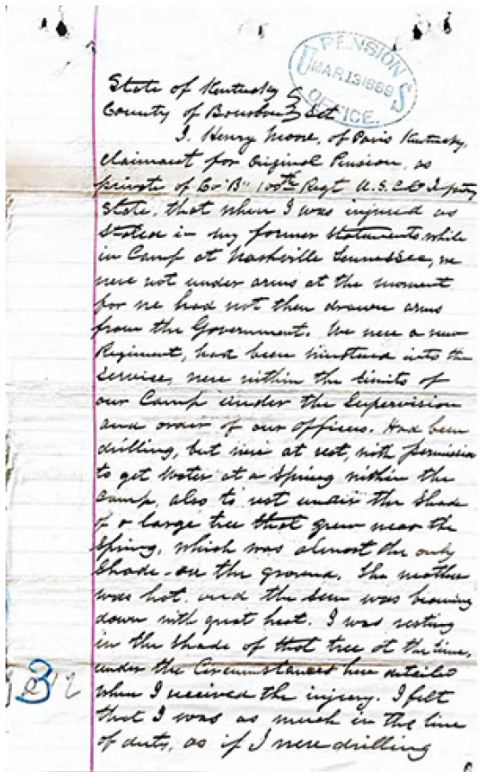 U.S. PENSION OFFICE.
MAR 13 1889
State of Kentucky
County of Bourbon } Sct
I, Henry Moore, of Paris Kentucky,
claimant for Original Pension, as
private of Co "B" 100th Regt U.S.C.
state, that when I was injured as
stated in my former Statements, while
in Camp at Nashville Tennessee, we
were not under arms at the moment
for we had not then drawn arms
from the Government. We were a new
Regiment, had been mustered into the
Service, were within the limits of
our Camp under the Supervision
and order of our officers. Had been
drilling, but were at rest, with permission
to get water at a Spring within the
Camp, also to rest under the Shade
of a large tree that grew near the
Spring, which was almost the only
Shade on the ground. The weather
was hot, and the Sun was beaming
down with great heat. I was resting
in the Shade of that tree at the time,
under the Circumstances here detailed
when I received the injury. I felt
that I was as much in the line
of duty, as if I were drilling
3